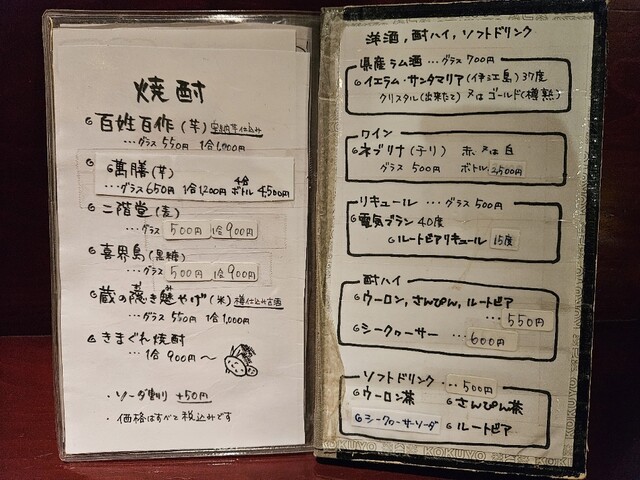 焼酎
百姓百作(芋)
…グラス 550円 1合1,000円
萬膳(芋)
…グラス650円 1合1,200円 4合ボトル 4,500円
二階堂(麦)
…グラス 500円 1合900円
喜界島(黒糖)
…グラス 500円 1合900円
蔵の隠き縫やげ(米)樽仕込み古酒
…グラス 550円 1合1,000円
きまぐれ焼酎
…1合 900円〜
・ソーダ割り +50円
・価格はすべて税込みです
洋酒,酎ハイ,ソフトドリンク
県産ラム酒 …グラス 700円
イエラム・サンタマリア(伊江島)37度
クリスタル(出来たて)又はゴールド(樽熟)
ワイン
ネブリナ(チリ) 赤 又は 白
グラス 500円 ボトル 2,500円
リキュール …グラス 500円
電気ブラン 40度
ルートビアリキュール 15度
酎ハイ
ウーロン,さんぴん,ルートビア
…550円
シークヮーサー … 600円
ソフトドリンク … 500円
ウーロン茶 さんぴん茶
シークヮーサーソーダ ルートビア
KOKUYO
KOKUYO
KOKUYO